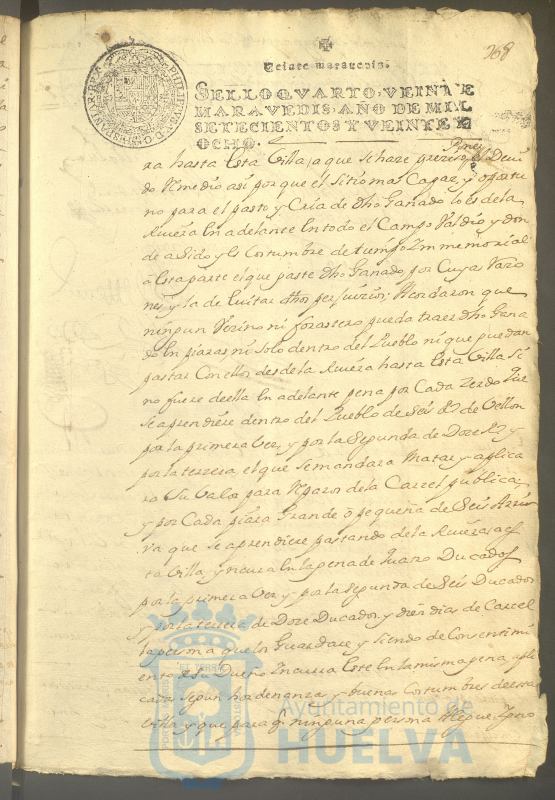 368
Veinte maravedis.
SELLO QVARTO, VEINTE
MARAVEDIS, AÑO DE MIL
SETECIENTOS Y VEINTE Y
OCHO.
ra hasta esta Villa, a que se haze preciso el Deui
do Remedio así porque el sitio mas Capaz, y oportu
no para el pasto y Cria de dho Ganado lo es de la
Riuera en adelante en todo el Campo Valdio, y don
de a Sido y es Costumbre de tiempo Immemorial
a esta parte el que paste dho Ganado, por Cuyas Razo
nes y la de euitar dhos perjuicios; Acordaron que
ningun Vezino ni forastero pueda traer dho Gana
do en piaras ni solo dentro del Pueblo ni que puedan
pastar Con ellos desde la Riuera hasta esta Villa Si
no fuere de ella en adelante pena por Cada Zerdo que
se aprendiere dentro del Pueblo de Seis Rs de Vellon
por la primera Vez, y por la Segunda de Doze Rs y
por la terzera, el que se mandara Matar y aplica
ra Su Valor para Reparos de la Carcel publica,
y por Cada piara Grande o pequeña de
que se aprendiere pastando de la Riuera a es
ta Villa, yncurra en la pena de quatro Ducados
por la primera Vez y por la segunda de Seis Ducados
y por la terzera de Doze Ducados, y diez dias de Carcel
la persona que lo Guardare, y Siendo de Consentimi
ento de su Dueño Incurra este en la misma pena apli
cada segun hordenanza, y buenas Costumbres de esta
Villa y que para q ninguna persona Alegue Igno
Ayuntamiento de
HUELVA